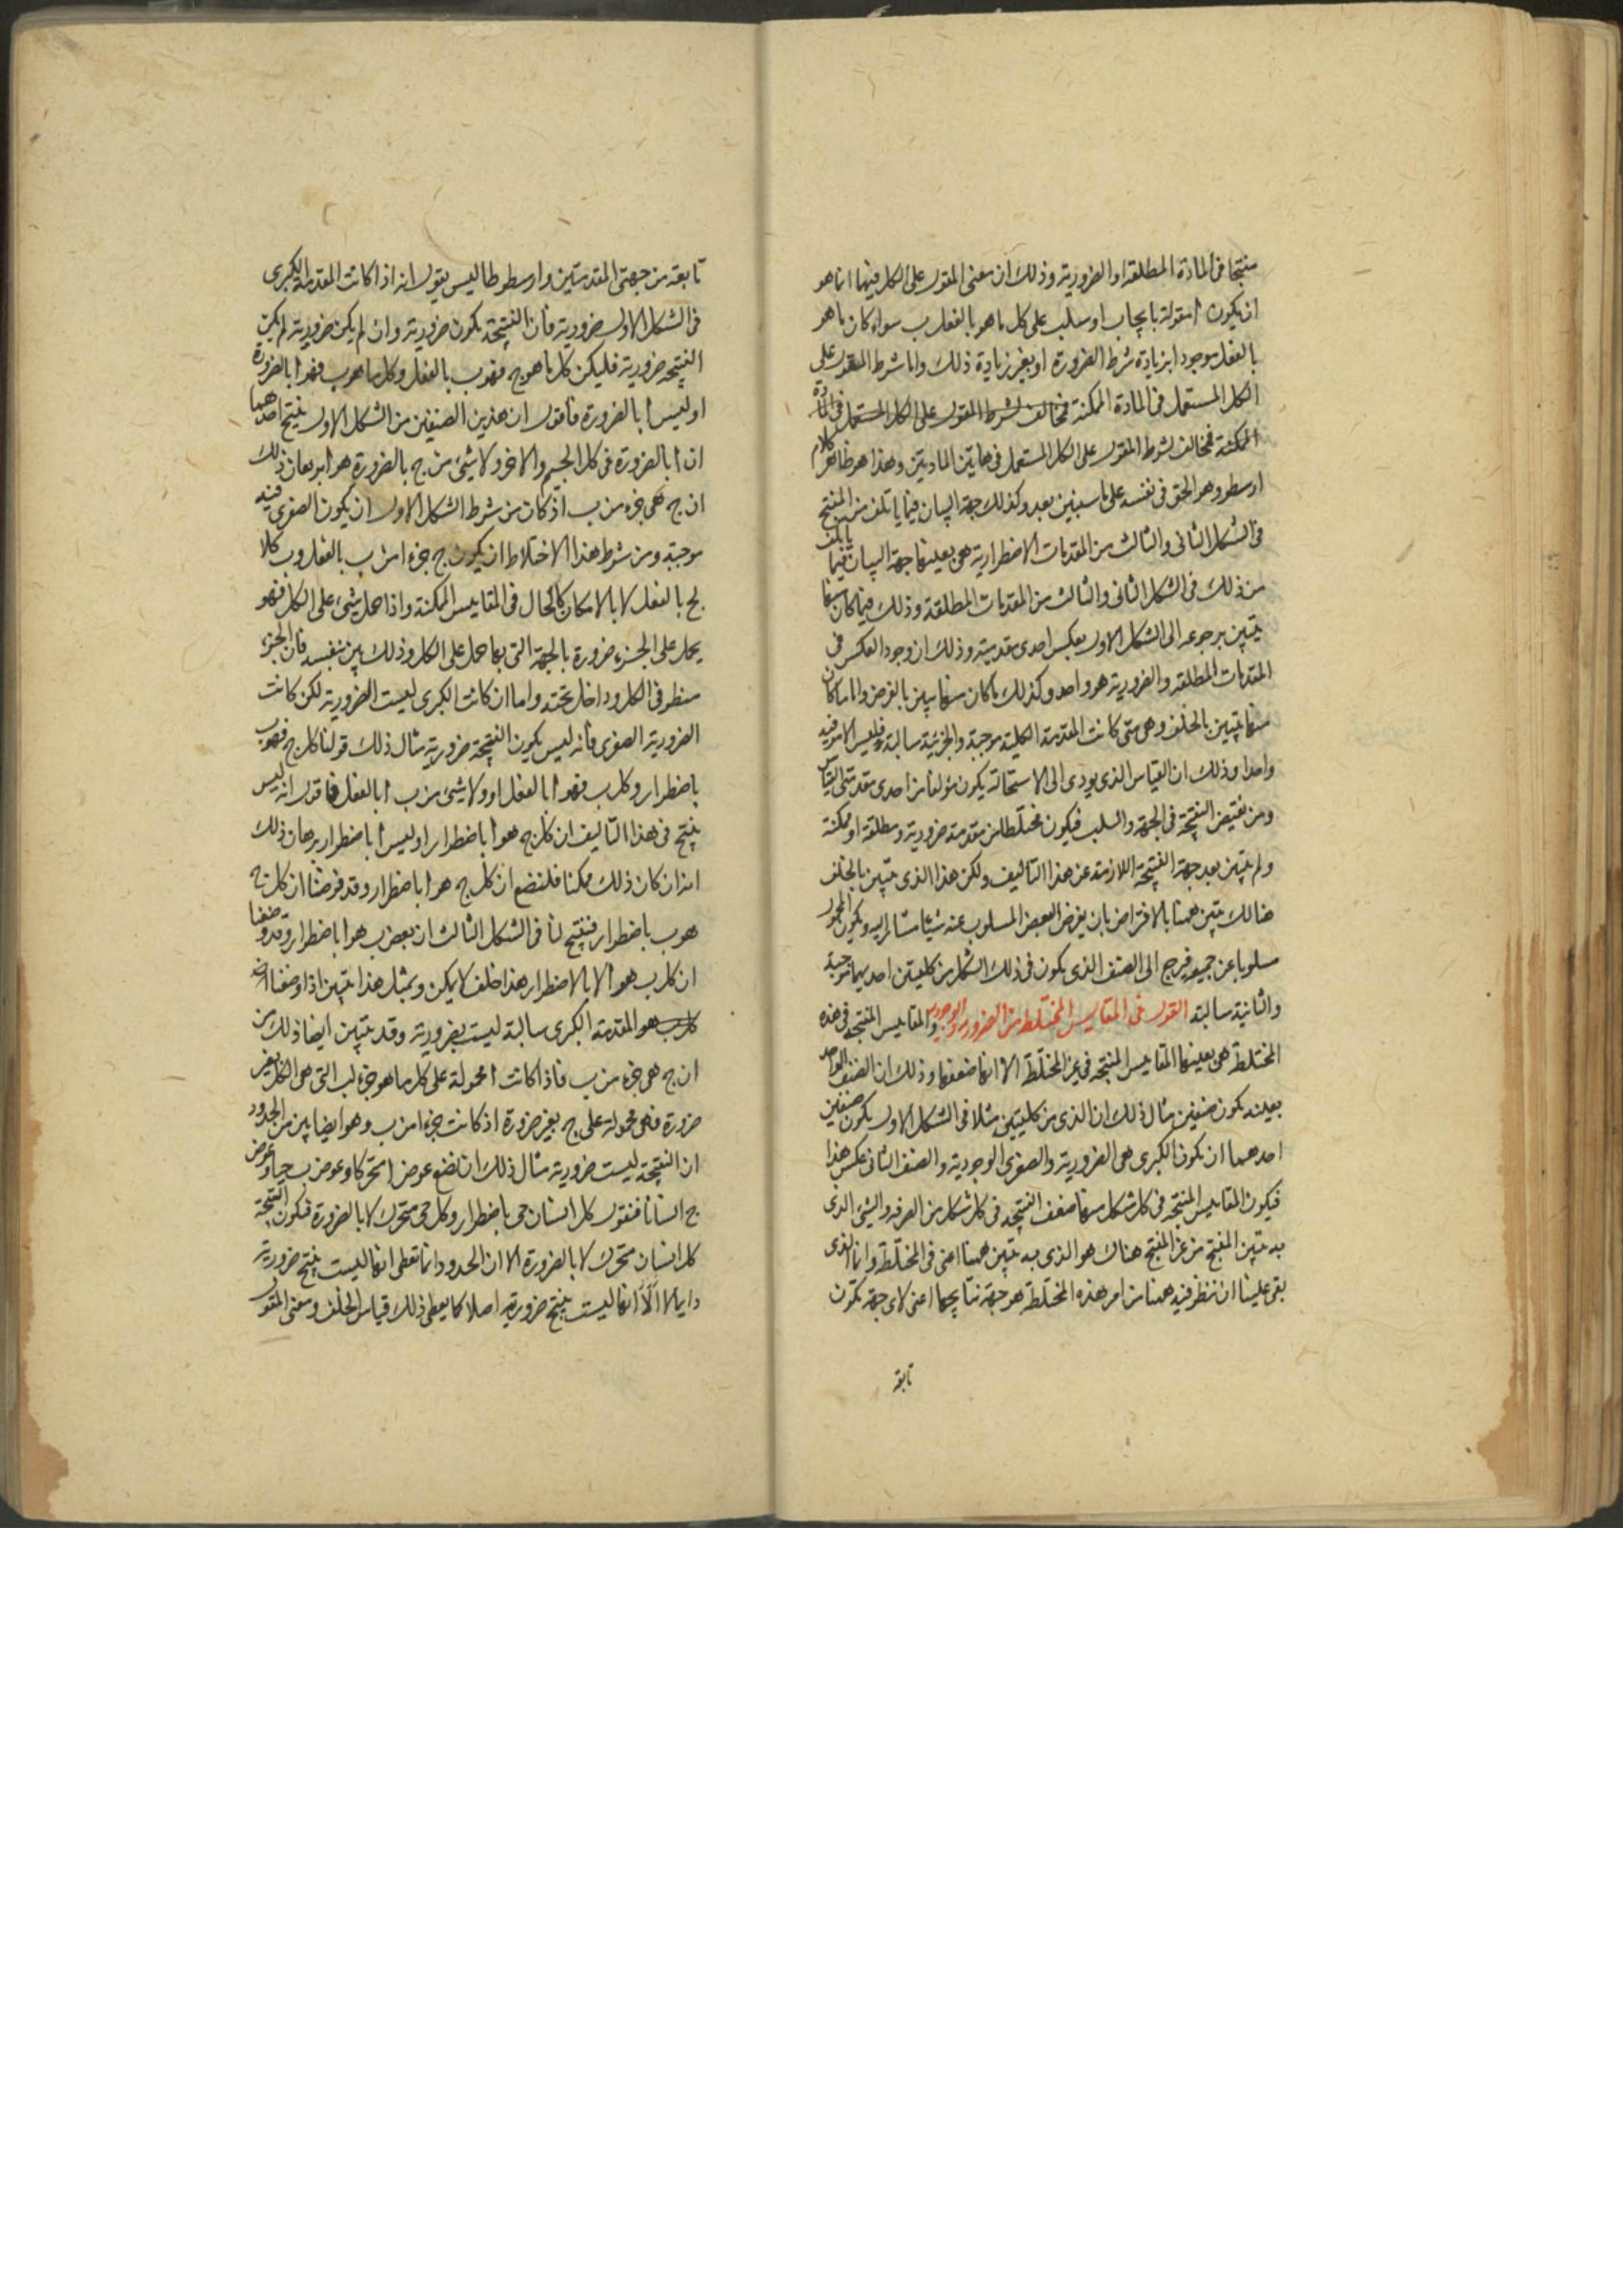 منتجا فى المادة المطلقة او الضرورية وذلك ان معنى المقول على الكل فيهما انما هو
ان يكون ا مقولة بايجاب او سلب على كل ما هو بالفعل ب سواء كان ما هو
بالفعل موجودا بزيادة شرط الضرورة او بغير زيادة ذلك واما شرط المقول على
الكل المستعمل فى المادة الممكنة فمخالف لشرط المقول على الكل المستعمل فى المادة
الممكنة فمخالف لشرط المقول على الكل المستعمل فى هاتين المادتين وهذا هو ظاهر كلام
ارسطو وهو الحق فى نفسه على ما سيبين بعد وكذلك جهة البيان فيما ياتلف من المنتج
فى الشكل الثانى والثالث من المقدمات الاضطرارية هى بعينها جهة البيان فيما ياتلف
من ذلك فى الشكل الثانى والثالث من المقدمات المطلقة وذلك فيما كان منها
يتبين برجوعه الى الشكل الاول بعكس احدى مقدمتيه وذلك ان وجود العكس فى
المقدمات المطلقة والضرورية هو واحد وكذلك ما كان منها يبين بالفرض واما ما كان
منها يتبين بالخلف وهى متى كانت المقدمة الكلية موجبة والجزئية سالبة فليس الامر فيه
واحدا وذلك ان القياس الذى يودى الى الاستحالة يكون مؤلفا من احدى مقدمتى القياس
ومن نقيض النتيجة فى الجهة والسلب فيكون مختلطا من مقدمة ضرورية ومطلقة او ممكنة
ولم يتبين بعد جهة النتيجة اللازمة عن هذا التاليف ولكن هذا الذى يتبين بالخلف
هنالك يتبين ههنا بالافتراض بان يفرض البعض المسلوب عنه شيئا مشارا اليه ويكون المحمول
مسلوبا عن جميعه فيرجع الى الصنف الذى يكون فى ذلك الشكل من كليتين احديهما موجبة
والثانية سالبة القول فى المقاييس المختلطة من الضرورية والوجودية والمقاييس المنتجة فى هذه
المختلطة هى بعينها المقاييس المنتجة فى غير المختلطة الا انها ضعفها وذلك ان الصنف الواحد
بعينه يكون صنفين مثال ذلك ان الذى من كليتين مثلا فى الشكل الاول يكون صنفين
احدهما ان يكون الكبرى هى الضرورية والصغرى الوجودية والصنف الثانى عكس هذا
فيكون المقاييس المنتجة فى كل شكل منها ضعف المنتجة فى كل شكل من الصرفة والشئ الذى
به يتبين المنتج من غير المنتج هناك هو الذى به يتبين ههنا اعنى فى المختلطة وانما الذى
بقى علينا ان ننظر فيه ههنا من امر هذه المختلطة هو جهة نتائجها اعنى لاى جهة تكون
تابعة
تابعة من جهتى المقدمتين وارسطوطاليس يقول انه اذا كانت المقدمة الكبرى
فى الشكل الاول ضرورية فان النتيجة تكون ضرورية وان لم يكن ضرورية لم يكن
النتيجة ضرورية فليكن كل ما هو ج فهو ب بالفعل وكل ما هو ب فهو ا بالضرورة
او ليس ا بالضرورة فاقول ان هذين الصنفين من الشكل الاول ينتج احدهما
ان ا بالضرورة فى كل ج والاخر ولا شئ من ج بالضرورة هو ا برهان ذلك
ان ج هى جزء من ب اذ كان من شرط الشكل الاول ان يكون الصغرى فيه
موجبة ومن شرط هذا الاختلاط ان يكون ج جزءا من ب بالفعل وب كلا
لج بالفعل لا بالامكان كالحال فى المقاييس الممكنة واذا حمل شئ على الكل فهو
يحمل على الجزء ضرورة بالجهة التى بها حمل على الكل وذلك بين بنفسه فان الجزء
منطو فى الكل وداخل تحته واما ان كانت الكبرى ليست الضرورية لكن كانت
الضرورية الصغرى فانه ليس يكون النتيجة ضرورية مثال ذلك قولنا كل ج فهو ب
باضطرار وكل ب فهو ا بالفعل او ولا شئ من ب ا بالفعل فاقول انه ليس
ينتج فى هذا التاليف ان كل ج هو ا باضطرار او ليس ا باضطرار برهان ذلك
انه ان كان ذلك ممكنا فلنضع ان كل ج هو ا باضطرار وقد فرضنا ان كل ج
هو ب باضطرار فينتج لنا فى الشكل الثالث ان بعض ب هو ا باضطرار وقد وضعنا
ان كل ب هو ا لا بالاضطرار هذا خلف لا يمكن وبمثل هذا يتبين اذا وضعنا
كل ب هو المقدمة الكبرى سالبة ليست بضرورية وقد يتبين ايضا ذلك من
ان ج هى جزء من ب فاذا كانت ا محمولة على كل ما هو جزء لب التى هى الكل بغير
ضرورة فهى محمولة على ج بغير ضرورة اذ كانت جزءا من ب وهو ايضا بين من الحدود
ان النتيجة ليست ضرورية مثال ذلك ان نضع عوض ا متحركا وعوض ب حيا وعوض
ج انسانا فنقول كل انسان حى باضطرار وكل حى متحرك لا بالضرورة فتكون النتيجة
كل انسان متحرك لا بالضرورة الا ان الحدود انما تعطى انها ليست ينتج ضرورية
دايما لا انها ليست ينتج ضرورية اصلا كما يعطى ذلك قياس الخلف ومعنى المقول